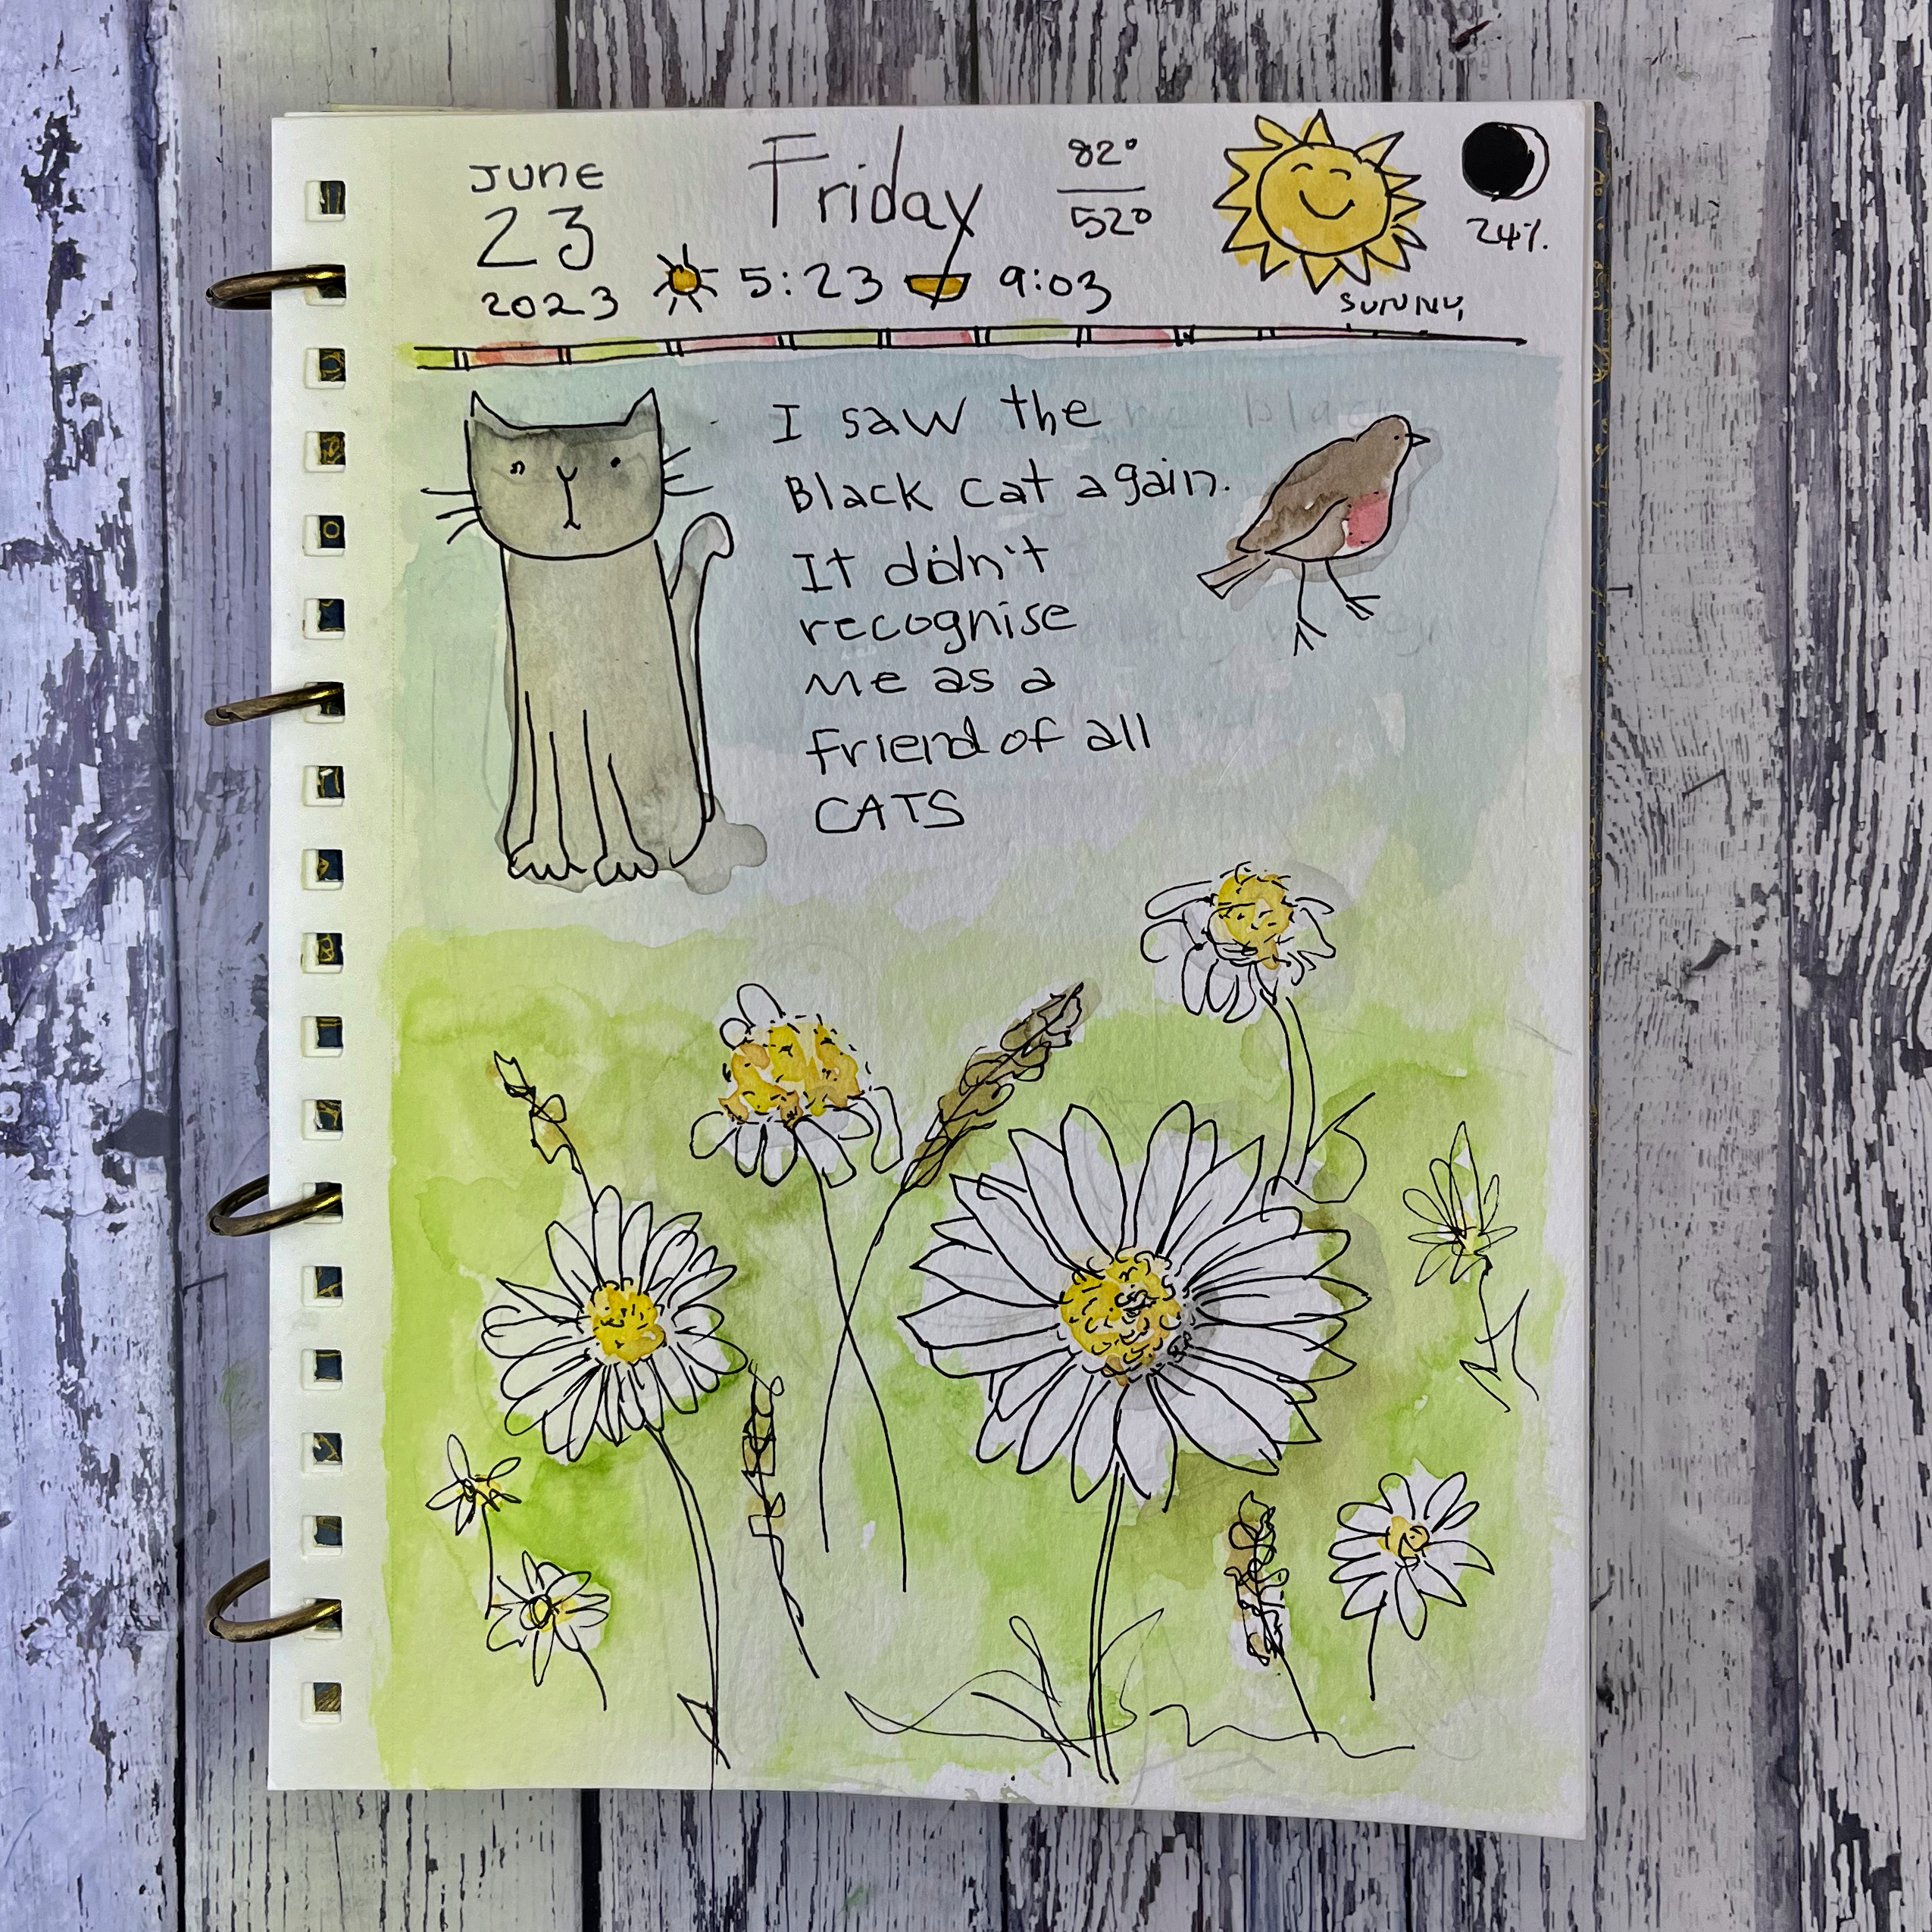 June
23
2023
Friday
82°
52°
5:23
9:03
24%.
SUNNY
I saw the
Black cat again.
It didn't
recognise
me as a
friend of all
CATS